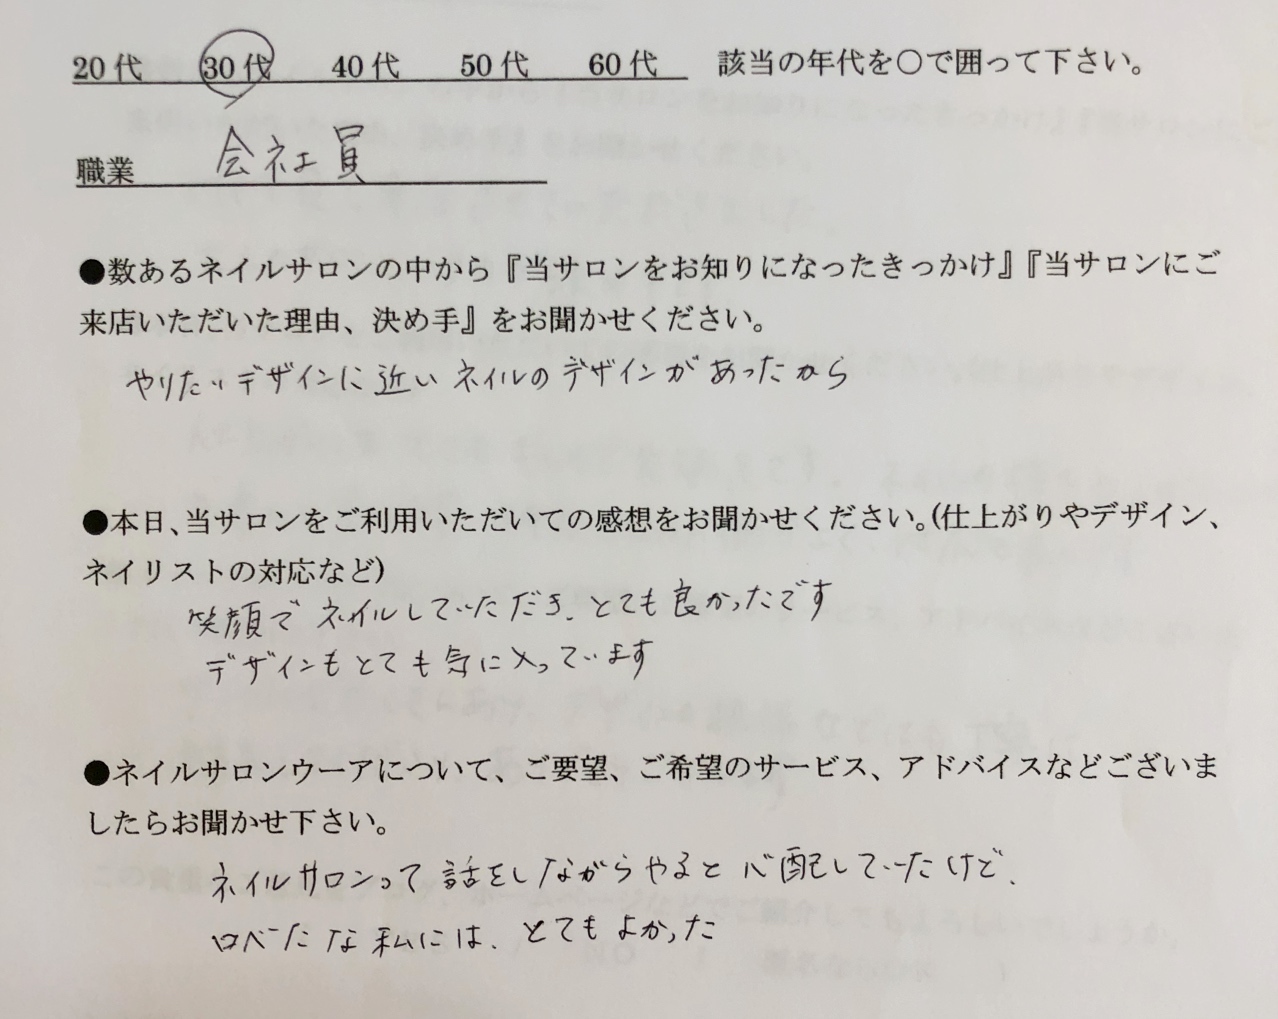 20代 30代 40代 50代 60代 該当の年代を〇で囲って下さい。
職業 会社員
●数あるネイルサロンの中から『当サロンをお知りになったきっかけ』『当サロンにご
来店いただいた理由、決め手』をお聞かせください。
やりたいデザインに近いネイルのデザインがあったから
●本日、当サロンをご利用いただいての感想をお聞かせください。(仕上がりやデザイン、
ネイリストの対応など)
笑顔でネイルしていただき、とても良かったです
デザインもとても気に入っています
●ネイルサロンウーアについて、ご要望、ご希望のサービス、アドバイスなどございま
したらお聞かせ下さい。
ネイルサロンって話をしながらやると心配していたけど、
口べたな私には、とてもよかった